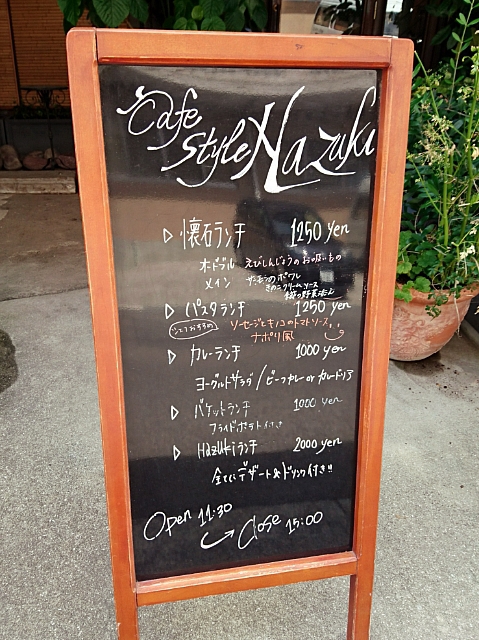 Cafe
Style Hazuki
▷ 懐石ランチ 1250 yen
オードブル えびしんじょうのお吸いもの
メイン サーモンのポワレ
きのこクリームソース
▷ パスタランチ 1250 yen
ソーセージとキノコのトマトソース
ナポリ風
▷ カレーランチ 1000 yen
ヨーグルトサラダ/ビーフカレー or カレードリア
▷ バケットランチ 1000 yen
フライドポテト付き
▷ Hazukiランチ 2000 yen
全てにデザート&ドリンク付き!!
Open 11:30
Close 15:00